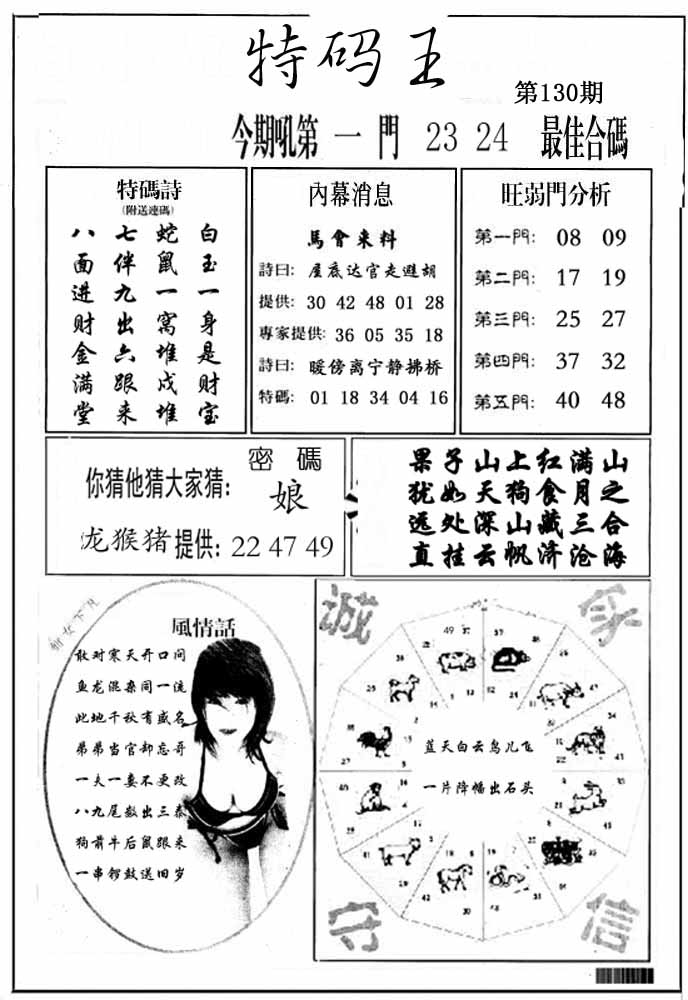 特码王
第130期
今期吼第一門 23 24 最佳合碼
特碼詩
(附送連碼)
白玉一身是财宝
蛇鼠一窝堆戍堆
七伴九出六跟来
八面进财金满堂
內幕消息
馬會来料
詩曰: 屋底达官走避胡
提供: 30 42 48 01 28
專家提供: 36 05 35 18
詩曰: 暖傍离宁静拂桥
特碼: 01 18 34 04 16
旺弱門分析
第一門: 08 09
第二門: 17 19
第三門: 25 27
第四門: 37 32
第五門: 40 48
密碼
你猜他猜大家猜: 娘
龙猴猪提供: 22 47 49
果子山上红满山
犹如天狗食月之
远处深山藏三合
直挂云帆济沧海
仙女下凡
風情話
敢对寒天开口问
鱼龙混杂同一流
此地千秋有盛名
弟弟当官却忘哥
一夫一妻不更改
八九尾数出三泰
狗前牛后鼠跟来
一串锣鼓送旧岁
诚
家
蓝天白云鸟儿飞
一片降幡出石头
守
信